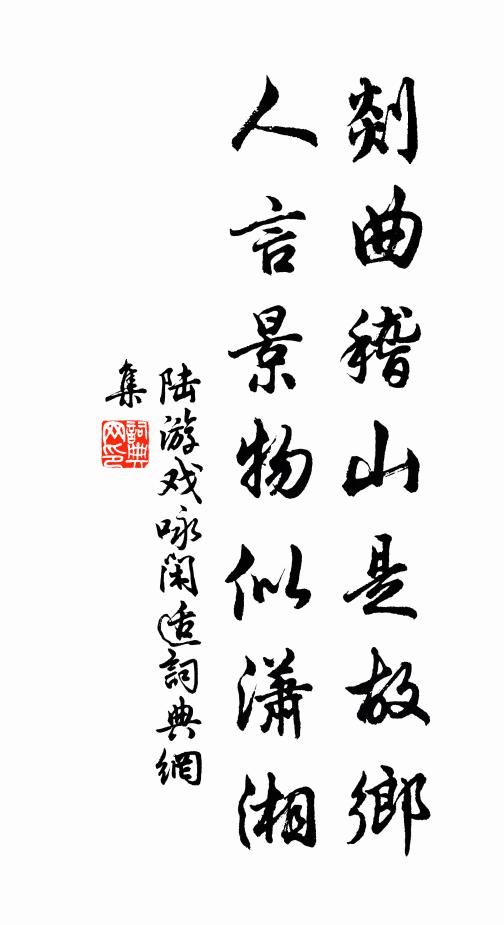 剡曲稽山是故鄉
人言景物似瀟湘
陆游戏咏闲适詞典網
集
詞典网印